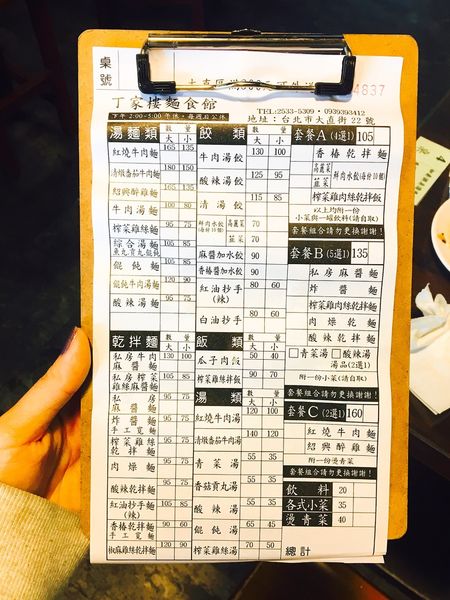 桌號
4837
丁家樓麵食館
TEL:2533-5309・0939393412
地址：台北市大直街22號
湯麵類 數量 大 小
紅燒牛肉麵 165 135
清燉番茄牛肉麵 180 150
紹興醉雞麵 165 135
牛肉湯麵 100 80
榨菜雞絲麵 95 75
綜合湯麵 魚丸貢丸餛飩 105 85
餛飩麵 105 85
餛飩牛肉湯麵 120 90
酸辣湯麵 95 75
乾拌麵 數量 大 小
私房牛肉麻醬麵 130 100
私房榨菜雞絲麻醬麵 105 85
私房麻醬麵 95 75
炸醬麵 手工寬麵 95 75
榨菜雞絲乾拌麵 95 75
肉燥麵 95 75
酸辣乾拌麵 95 75
紅油抄手麵(辣) 105 85
香椿乾拌麵 手工寬麵 90 60
椒麻雞絲乾拌麵
餃類 數量 大 小
牛肉湯餃 130 100
酸辣湯餃 125 95
清湯餃 115 85
鮮肉水餃(每份10個) 高麗菜 70
韮菜 70
麻醬加水餃 90
香椿醬加水餃 90
紅油抄手(辣) 80 60
白油抄手 80 60
飯類 數量 大 小
瓜子肉飯 50 40
榨菜雞絲拌飯 90 70
湯類 數量 大 小
紅燒牛肉湯 120 100
清燉番茄牛肉湯 140 120
青菜湯 55 35
香菇貢丸湯 55 35
酸辣湯 55 35
餛飩湯 65 45
榨菜雞絲湯 70 50
套餐A(4選1) 105
香椿乾拌麵
高麗菜 韮菜 鮮肉水餃(每份10個)
榨菜雞肉絲乾拌麵
以上均附一份
小菜與一罐飲料(請自取)
套餐組合請勿更換謝謝!
套餐B(5選1) 135
私房麻醬麵
炸醬麵
榨菜雞肉絲乾拌麵
肉燥乾麵
酸辣乾拌麵
□青菜湯 □酸辣湯
湯品(2選1)
附一份小菜(請自取)
套餐組合請勿更換謝謝!
套餐C(2選1) 160
紅燒牛肉麵
紹興醉雞麵
附一份燙青菜
套餐組合請勿更換謝謝!
飲料 20
各式小菜 35
燙青菜 40
總計